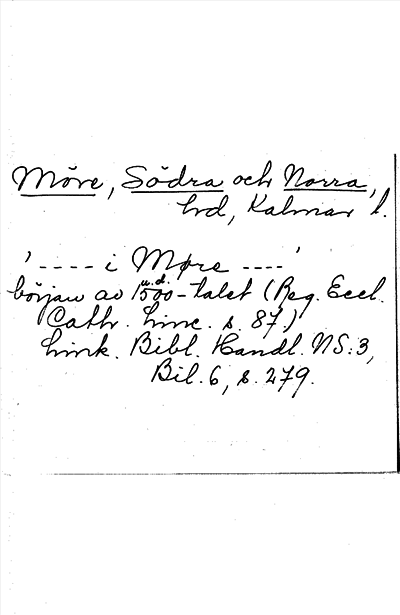 Möre, Södra och Norra,
hrd, Kalmar l.
'---- i Møre ----'
början av 1500-talet (Reg. Eccl.
u.d.
Cath. Linc. s. 87)
Link. Bibl. Handl. NS:3,
Bil. 6, s. 279.